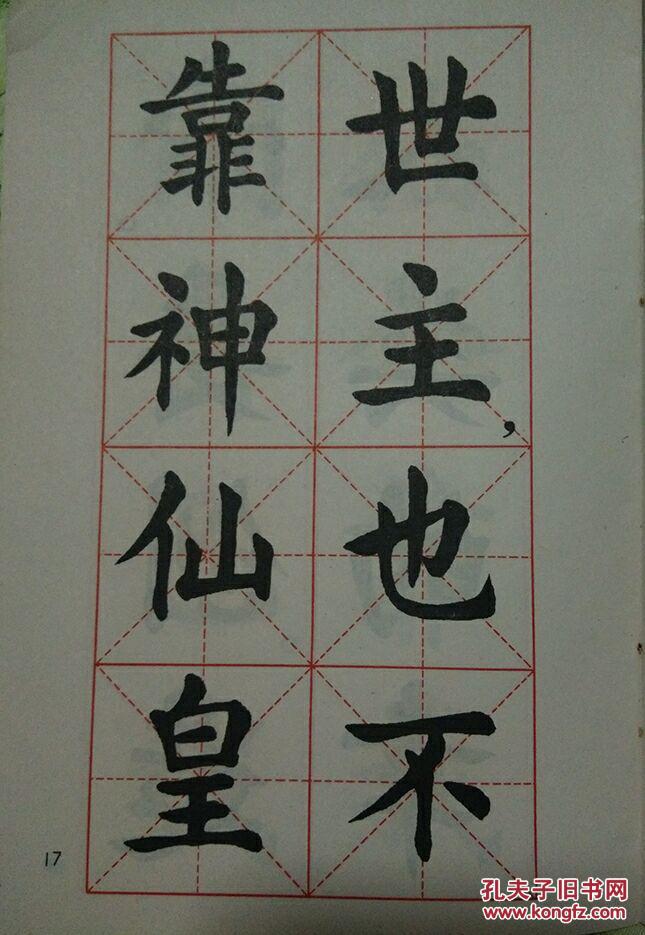 世主，也不
靠神仙皇
17
孔夫子旧书网
www.kongfz.com